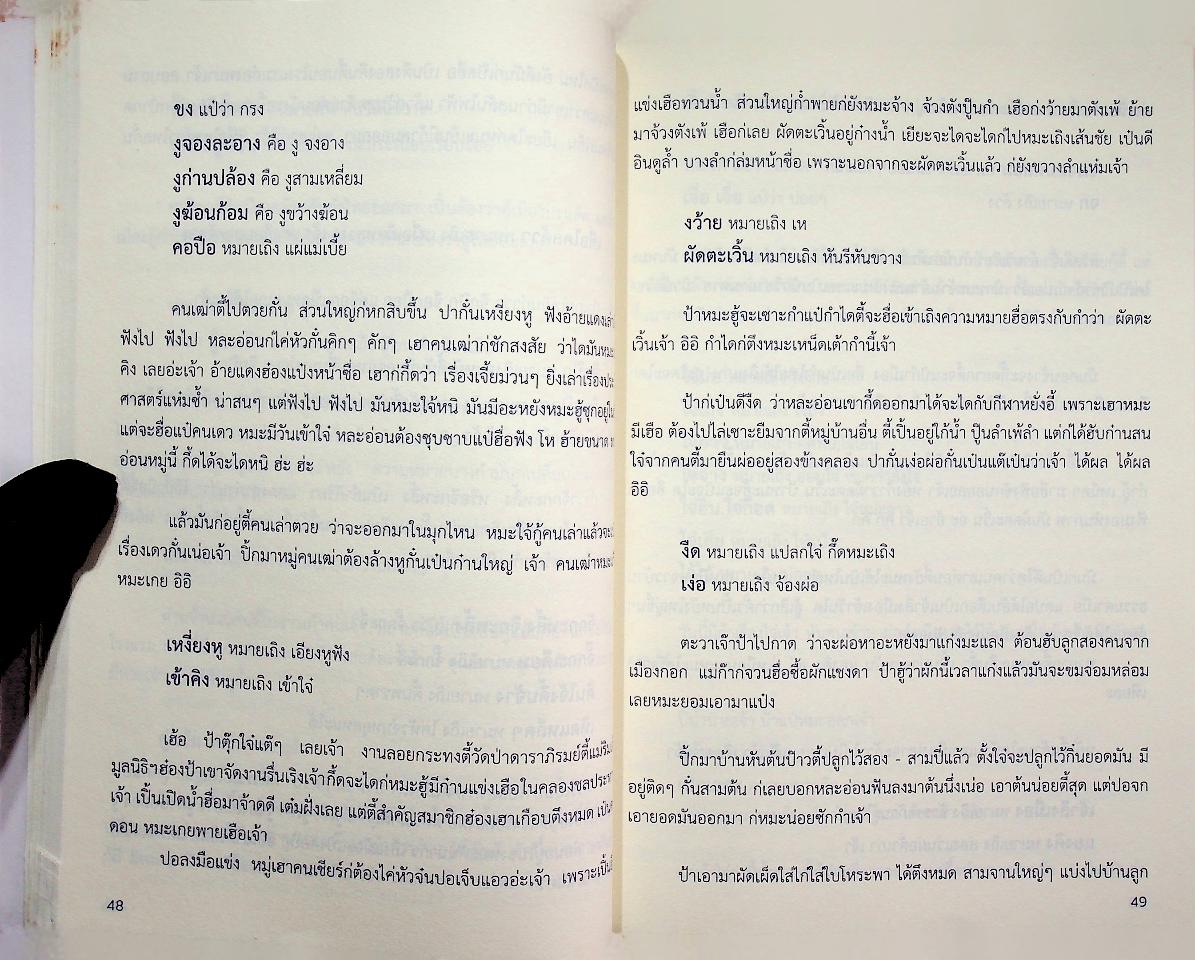 ขง แป๋ว่า กรง
งูจองละอาง คือ งู จงอาง
งูก่านปล้อง คือ งูสามเหลี่ยม
งูฆ้อนก้อม คือ งูขว้างฆ้อน
คอปือ หมายเถิง แผ่แม่เบี้ย
คนเฒ่าตี้ไปตวยกั๋น ส่วนใหญ่ก่หกสิบขึ้น ปากั๋นเหงี่ยงหู ฟังอ้ายแดงเล่า
ฟังไป ฟังไป หละอ่อนกไค่หัวกั๋นคิกๆ คักๆ เฮาคนเฒ่าก่ชักสงสัย ว่าไดมันหมะ
คิง เลยอ่ะเจ้า อ้ายแดงฮ่องแป๋งหน้าซื่อ เฮาก่กึ้ดว่า เรื่องเจี้ยม่วนๆ ยิ่งเล่าเรื่องประ
ศาสตร์แห๋มซ้ำ น่าสนๆ แต่ฟังไป ฟังไป มันหมะใจ้หนิ มันมีอะหยังหมะฮู้ซุกอยู่ใน
แต่จะฮื่อแป๋คนเดว หมะมีวันเข้าใจ๋ หละอ่อนต้องซุบซาบแป๋ฮื่อฟัง โห ฮ้ายขนาด
อ่อนหมู่นี้ กึ้ดได้จะไดหนิ ฮ่ะ ฮ่ะ
แล้วมันก่อยู่ตี้คนเล่าตวย ว่าจะออกมาในมุกไหน หมะใจ้กู้คนเล่าแล้วจะ
เรื่องเดวกั๋นเน่อเจ้า ปิ้กมาหมู่คนเฒ่าต้องล้างหูกั๋นเป๋นก๋านใหญ่ เจ้า คนเฒ่าหมะ
หมะเกย อิอิ
เหงี่ยงหู หมายเถิง เอียงหูฟัง
เข้าคิง หมายเถิง เข้าใจ๋
เฮ้อ ป้าตุ๊กใจ๋แต๊ๆ เลยเจ้า งานลอยกระทงตี้วัดป่าดาราภิรมย์ตี้แม่ริม
มูลนิธิฯฮ๋องป้าเขาจัดงานรื่นเริงเจ้ากึ้ดจะไดก่หมะฮู้มีก๋านแข่งเฮือในคลองชลประทาน
เจ้า เปิ้นเปิดน้ำฮื่อมาจ้าดดี เต๋มฝั่งเลย แต่ตี้สำคัญสมาชิกฮ่องเฮาเกือบตึงหมด เป๋น
ดอน หมะเกยพายเฮือเจ้า
ปอลงมือแข่ง หมู่เฮาคนเชียร์ก่ต้องไค่หัวจ๋นปอเจ็บแอวอ่ะเจ้า เพราะเปิ้น
48
แข่งเฮือทวนน้ำ ส่วนใหญ่ก๋ำพายก่ยังหมะจ้าง จ้วงตังปู๊นกำ เฮือก่งว้ายมาตังเพ้ ย้าย
มาจ้วงตังเพ้ เฮือก่เลย ผัดตะเวิ้นอยู่ก๋างน้ำ เยียะจะไดจะไดก่ไปหมะเถิงเส้นชัย เป๋นดี
อินดูล้ำ บางลำก่ล่มหน้าซื่อ เพราะนอกจากจะผัดตะเวิ้นแล้ว ก่ยังขวางลำแห๋มเจ้า
งว้าย หมายเถิง เห
ผัดตะเวิ้น หมายเถิง หันรีหันขวาง
ป้าหมะฮู้จะเซาะกำแป๋กำไดตี้จะฮื่อเข้าเถิงความหมายฮื่อตรงกับกำว่า ผัดตะ
เวิ้นเจ้า อิอิ กำไดก่ตึงหมะเหน็ดเต้ากำนี้เจ้า
ป้าก่เป๋นดีงืด ว่าหละอ่อนเขากึ้ดออกมาได้จะไดกับกีฬาหยั่งอี้ เพราะเฮาหมะ
มีเฮือ ต้องไปไล่เซาะยืมจากตี้หมู่บ้านอื่น ตี้เปิ้นอยู่ใก้น้ำ ปู๊นลำเพ้ลำ แต่ก่ได้ฮับก๋านสน
ใจ๋จากคนตี้มายืนผ่ออยู่สองข้างคลอง ปากั๋นเง่อผ่อกั๋นเป๋นแต๊เป๋นว่าเจ้า ได้ผล ได้ผล
อิอิ
งืด หมายเถิง แปลกใจ๋ กึ๊ดหมะเถิง
เง่อ หมายเถิง จ้องผ่อ
ตะวาเจ๊าป้าไปกาด ว่าจะผ่อหาอะหยังมาแก๋งมะแลง ต้อนฮับลูกสองคนจาก
เมืองกอก แม่ก๊าก่จวนฮื่อซื้อผักแซงดา ป้าฮู้ว่าผักนี้เวลาแก๋งแล้วมันจะขมจ่อมหล่อม
เลยหมะยอมเอามาแป๋ง
ปิ้กมาบ้านหันต้นป๊าวตี้ปลูกไว้สอง - สามปี๋แล้ว ตั้งใจ๋จะปลูกไว้กิ๋นยอดมัน มี
อยู่ติดๆ กั๋นสามต้น ก่เลยบอกหละอ่อนฟันลงมาต้นนึ่งเน่อ เอาต้นน่อยตี้สุด แต่ปอจก
เอายอดมันออกมา ก่หมะน่อยซักก่ำเจ้า
ป้าเอามาผัดเผ็ดใส่ไก่ใส่ใบโหระพา ได้ตึงหมด สามจานใหญ่ๆ แบ่งไปบ้านลูก
49